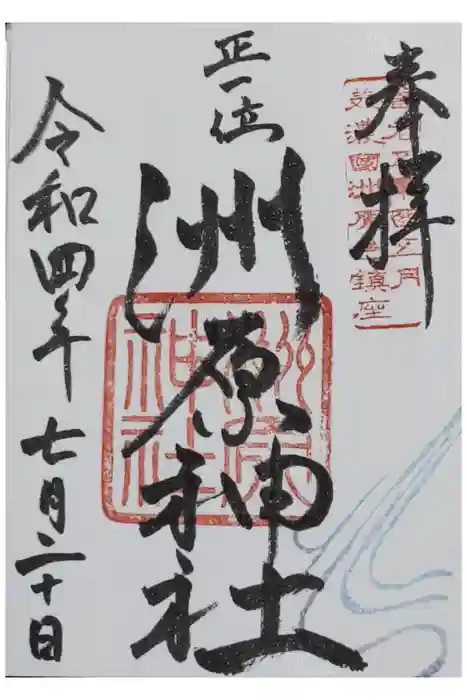 奉拝
美濃國洲原鎮座
正一位
洲原神社
洲原神社
令和四年七月二十日